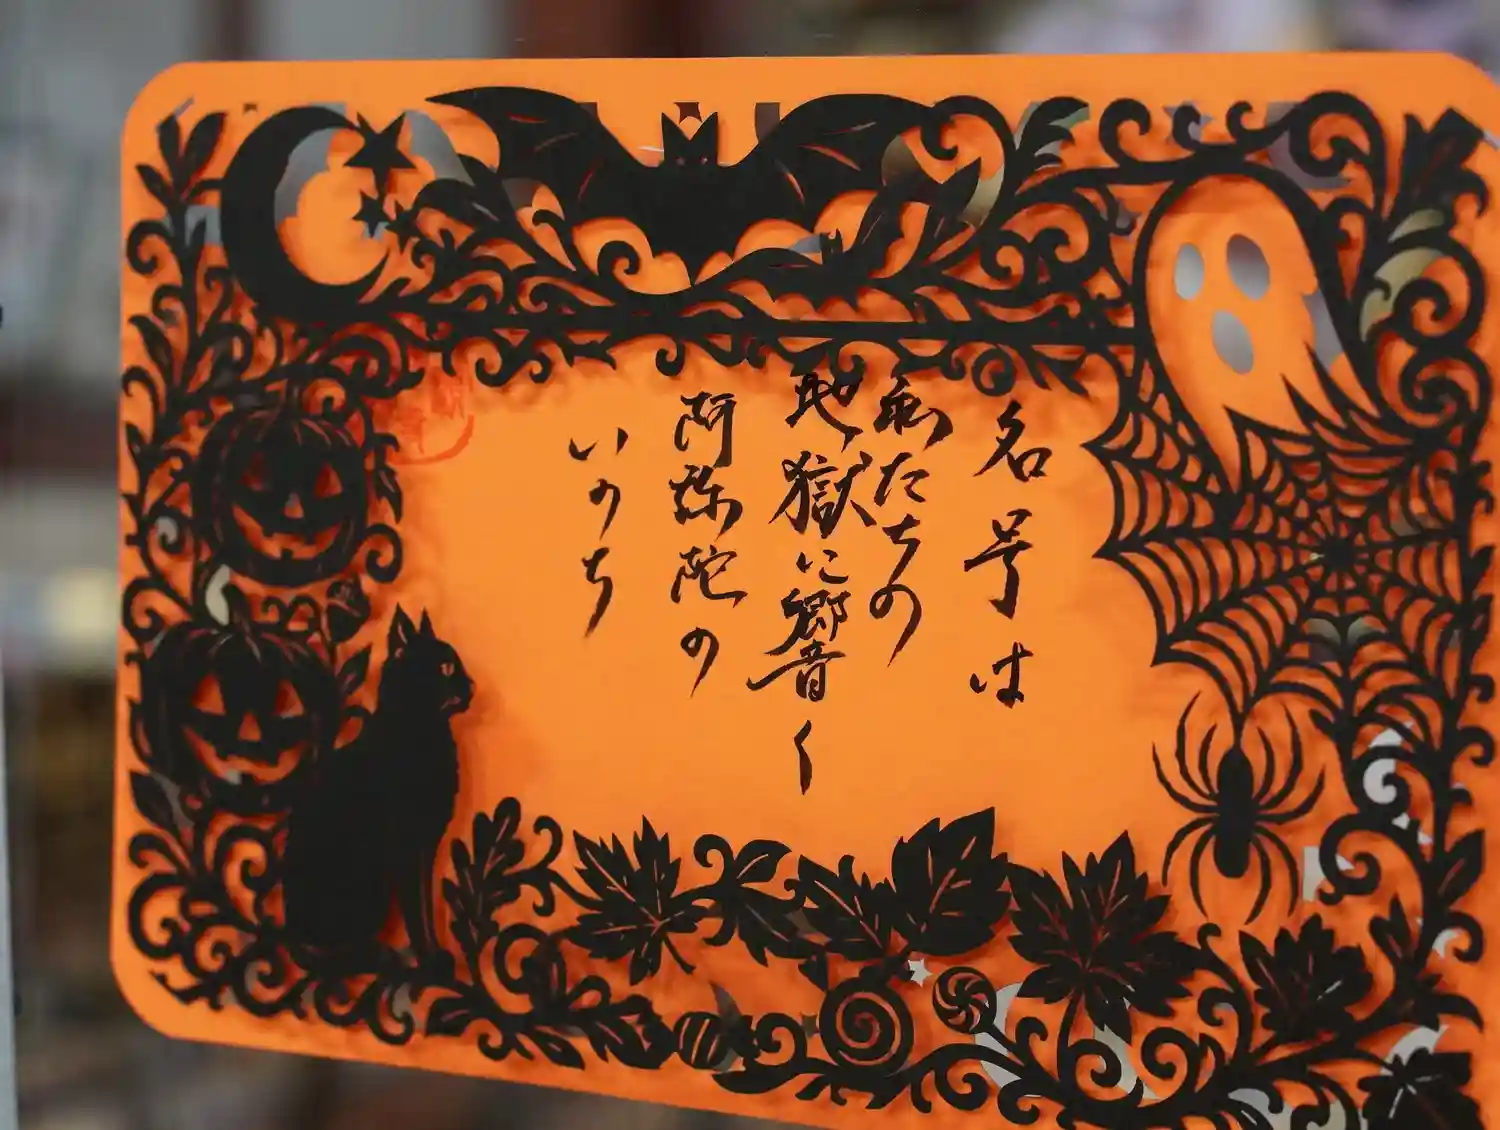 名号は
私たちの
地獄に響く
阿弥陀の
いのち